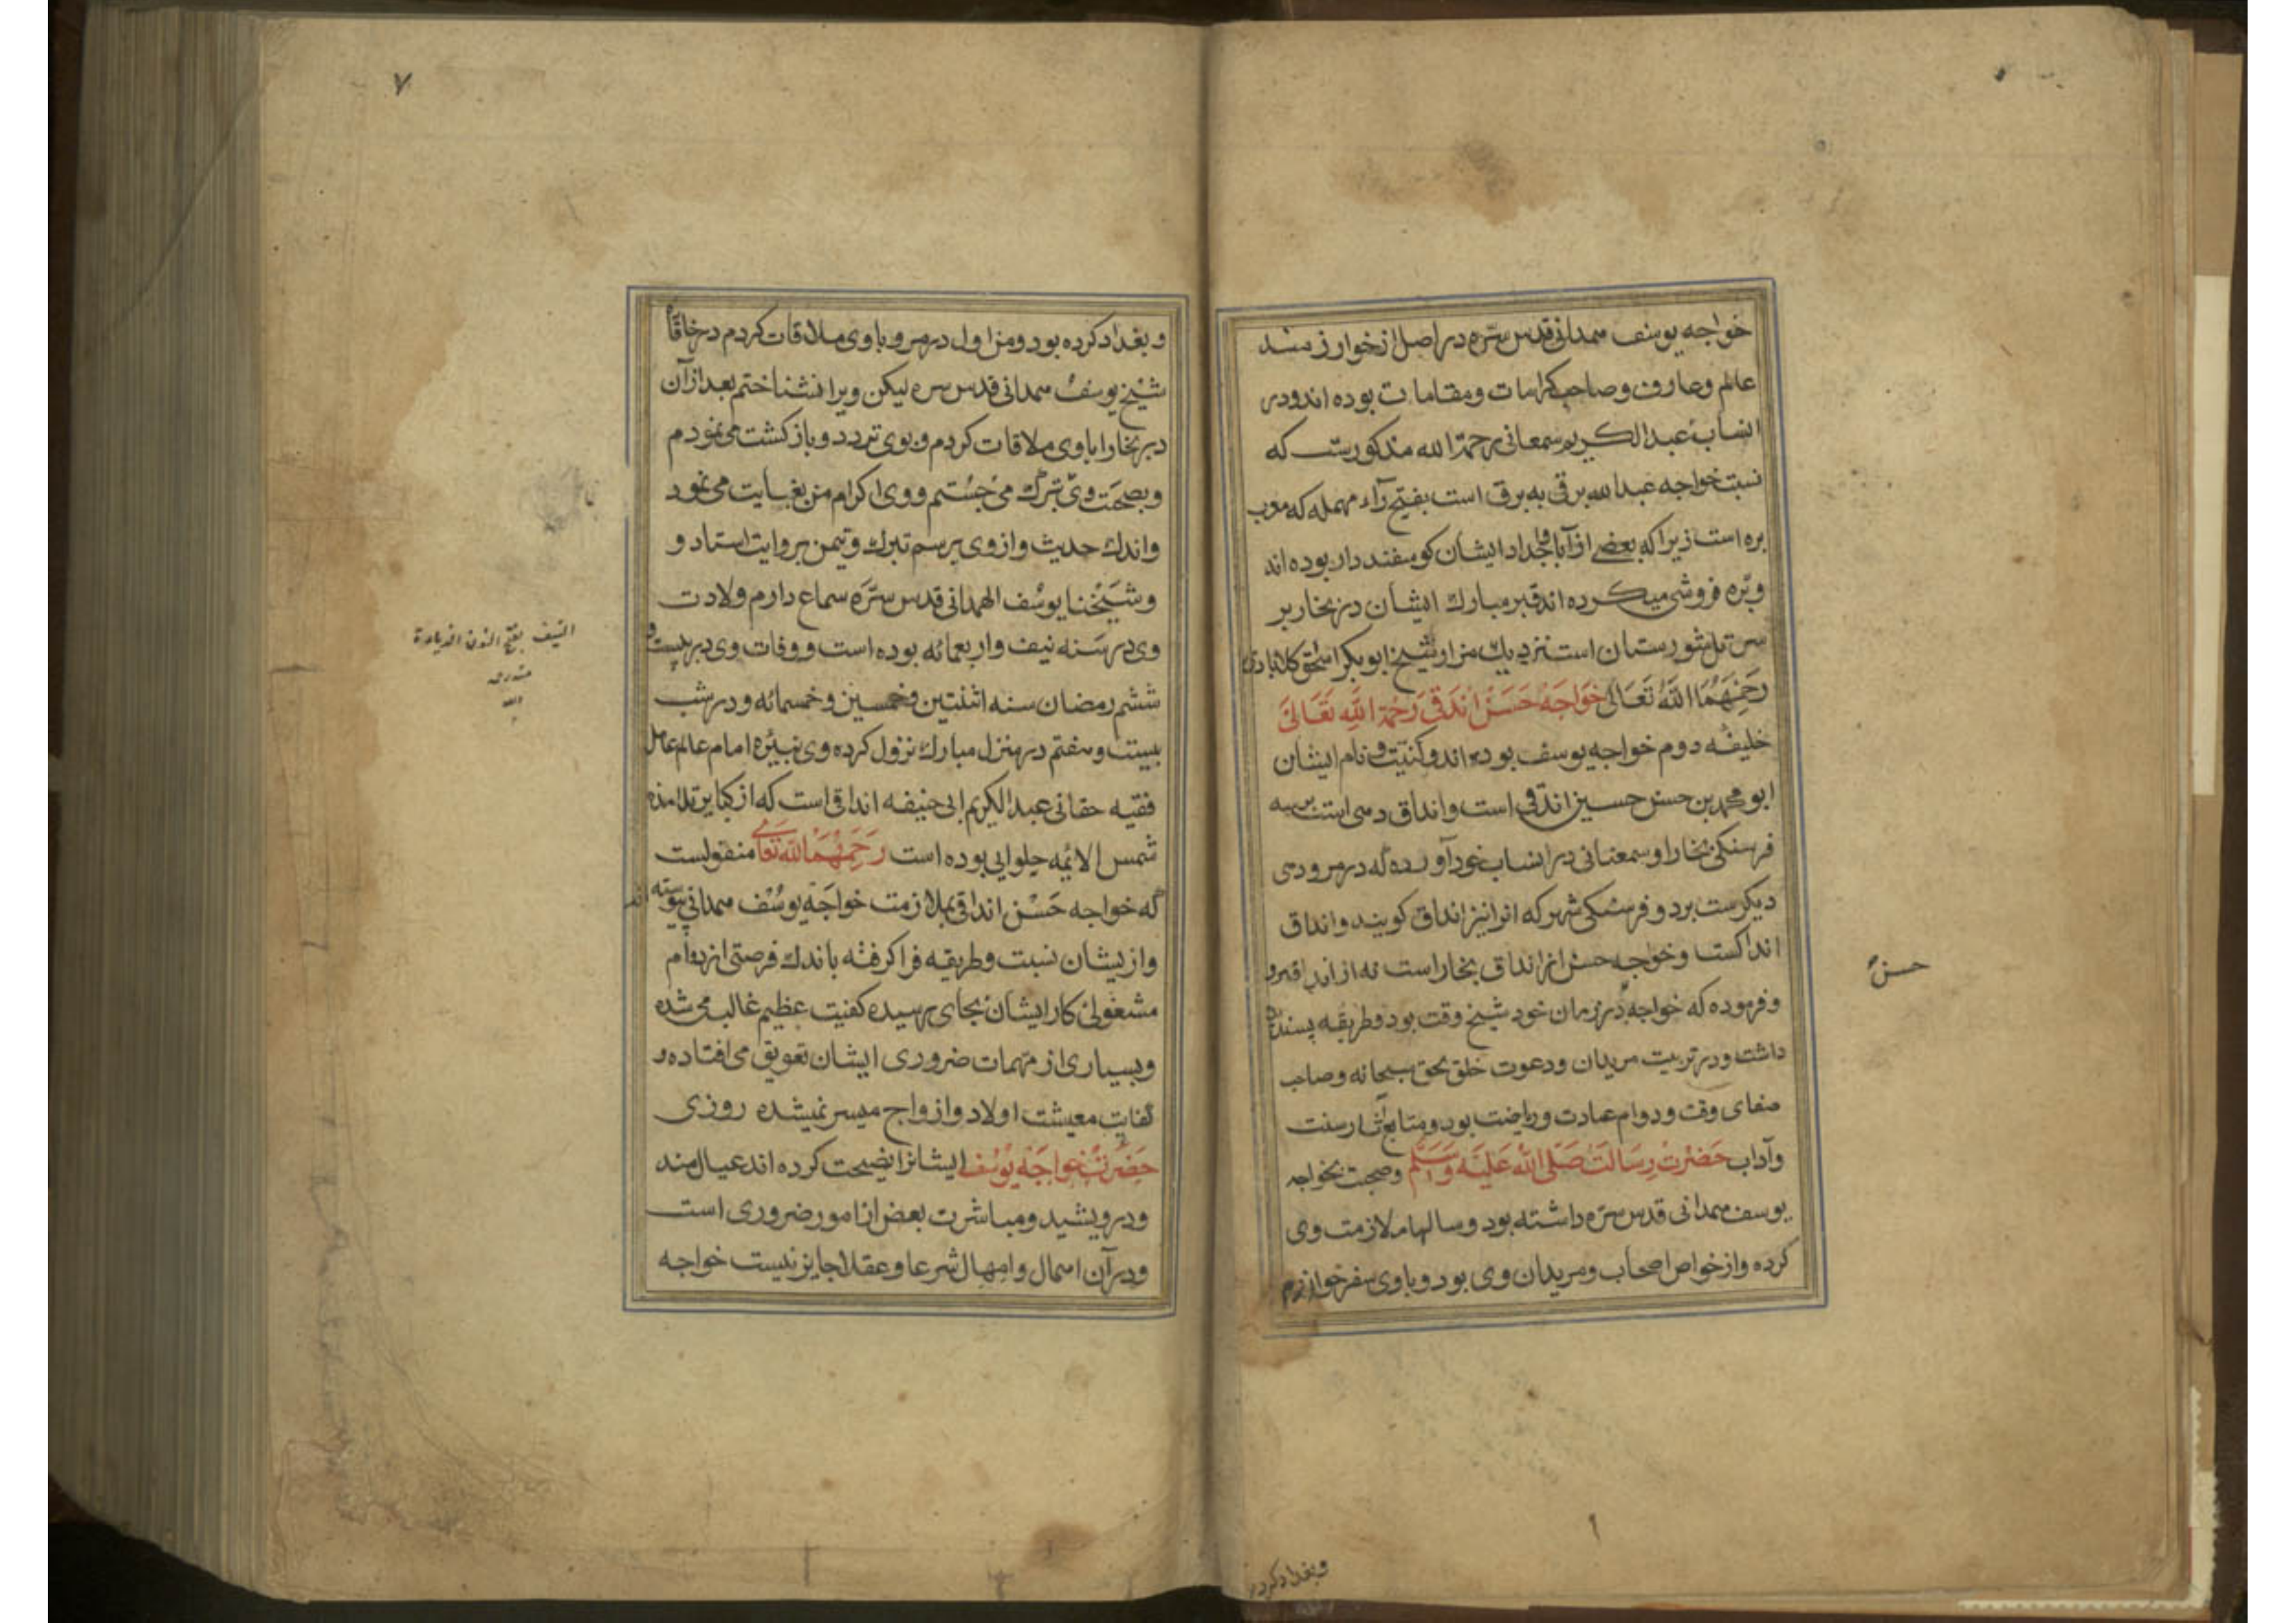 خواجه یوسف همدانی قدس سره در اصل از خوارزمند
عالم و عارف و صاحب کرامات و مقامات بوده اند و در
انساب عبدالکریم سمعانی رحمة الله مذکورست که
نسبت خواجه عبدالله برقی به برق است بفتح راء مهمله که معرب
بره است زیرا که بعضی از آبا و اجداد ایشان کوسفند دار بوده اند
و بره فروشی میکرده اند قبر مبارک ایشان در بخارا بر
سر تل شورستان است نزدیک مزار شیخ ابوبکر اسحق کلابادی
رحمهما الله تعالی خواجه حسن اندقی رحمة الله تعالی
خلیفه دوم خواجه یوسف بوده اند و کنیت و نام ایشان
ابو محمد بن حسن حسین اندقی است و انداق دهی است بر سه
فرسنکی بخارا و سمعانی در انساب خود آورده که در مرو دهی
دیکرست بر دو فرسنکی شهر که انرا نیز انداق کویند و انداق
انداکست و خواجه حسن از انداق بخاراست نه از انداق مرو
و فرموده که خواجه در زمان خود شیخ وقت بود و طریقه پسندیده
داشت و در تربیت مریدان و دعوت خلق بحق سبحانه و صاحب
صفای وقت و دوام عبادت و ریاضت بود و متابع آثار سنت
و آداب حضرت رسالت صلی الله علیه وسلم و صحبت بخواجه
یوسف همدانی قدس سره داشته بود و سالها ملازمت وی
کرده و از خواص اصحاب و مریدان وی بود و با وی سفر خوارزم
حسن
وبغداد کرده
۷
و بغداد کرده بود و من اول در مرو با وی ملاقات کردم در خانقاه
شیخ یوسف همدانی قدس سره لیکن ویرا نشناختم بعد از آن
در بخارا با وی ملاقات کردم و بوی تردد و بازکشت می نمودم
و بصحبت وی تبرک می جستم و وی اکرام من بغایت می نمود
و اندک حدیث از وی برسم تبرک و تیمن بروایت استاد و
و شیخنا یوسف الهمدانی قدس سره سماع دارم ولادت
وی در سنه نیف و اربعمائه بوده است و وفات وی در بیست و
ششم رمضان سنه اثنتین و خمسین و خمسمائه و در شب
بیست و هفتم در منزل مبارک نزول کرده وی نبیره امام عالم عامل
فقیه حقانی عبدالکریم ابی حنیفه انداقی است که از کبایر تلامذه
شمس الائمه حلوایی بوده است رحمهما الله تعالی منقولست
که خواجه حسن انداقی بملازمت خواجه یوسف همدانی پیوسته اند
و از یشان نسبت و طریقه فرا کرفته باندک فرصتی از دوام
مشغولی کار ایشان بجای رسیده کفیت عظیم غالب می شده
و بسیاری از مهمات ضروری ایشان تعویق می افتاده و
کفایت معیشت اولاد و ازواج میسر نمیشده روزی
حضرت خواجه یوسف ایشانرا نصیحت کرده اند عیال مند
و درویشید و مباشرت بعض از امور ضروری است
و در آن اهمال و امهال شرعا و عقلا جایز نیست خواجه
النیف بفتح النون الزیادة